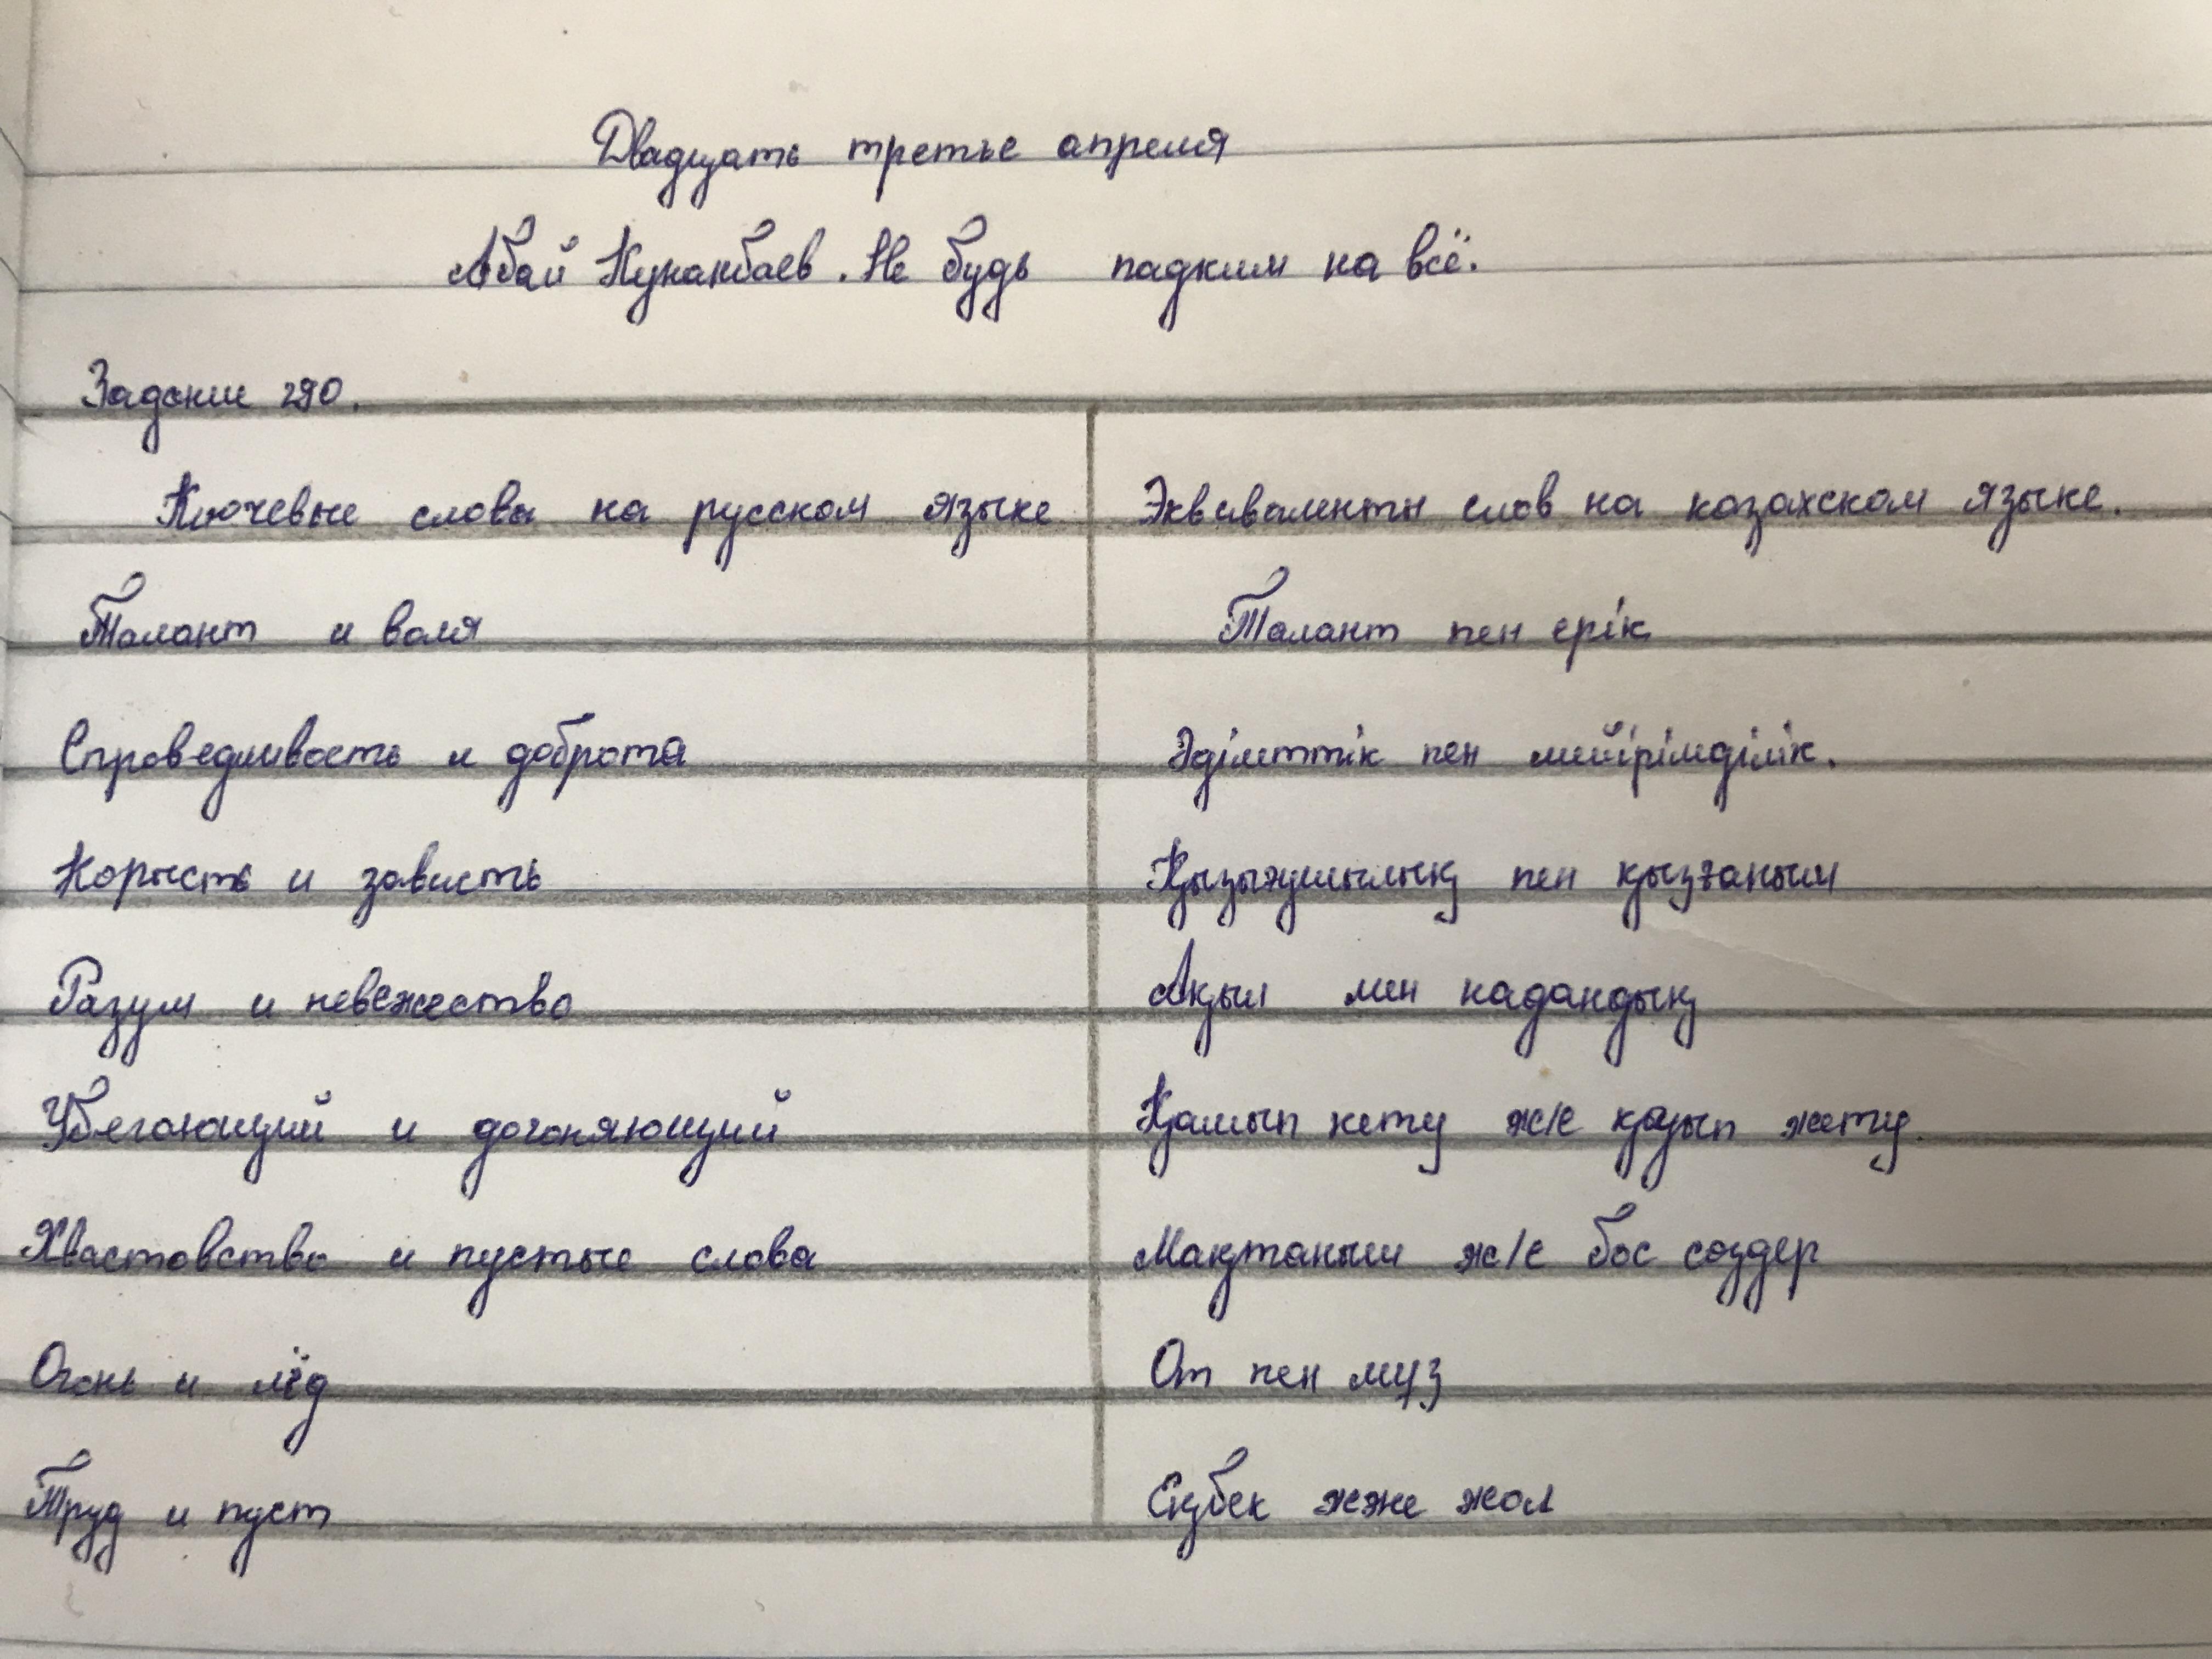 Двадцать третье апреля
Абай Кунанбаев. Не будь падким на всё.
Задание 290.
Ключевые слова на русском языке Эквиваленты слов на казахском языке.
Талант и воля Талант пен ерік
Справедливость и доброта Әділеттік пен мейірімділік.
Корысть и зависть Қызығушылық пен қызғаныш
Разум и невежество Ақыл мен надандық
Убегающий и догоняющий Қашып кету ж/е қуып жету.
Хвастовство и пустые слова Мақтаныш ж/е бос сөздер
Огонь и лёд От пен мұз
Труд и пуст Еңбек жже жол